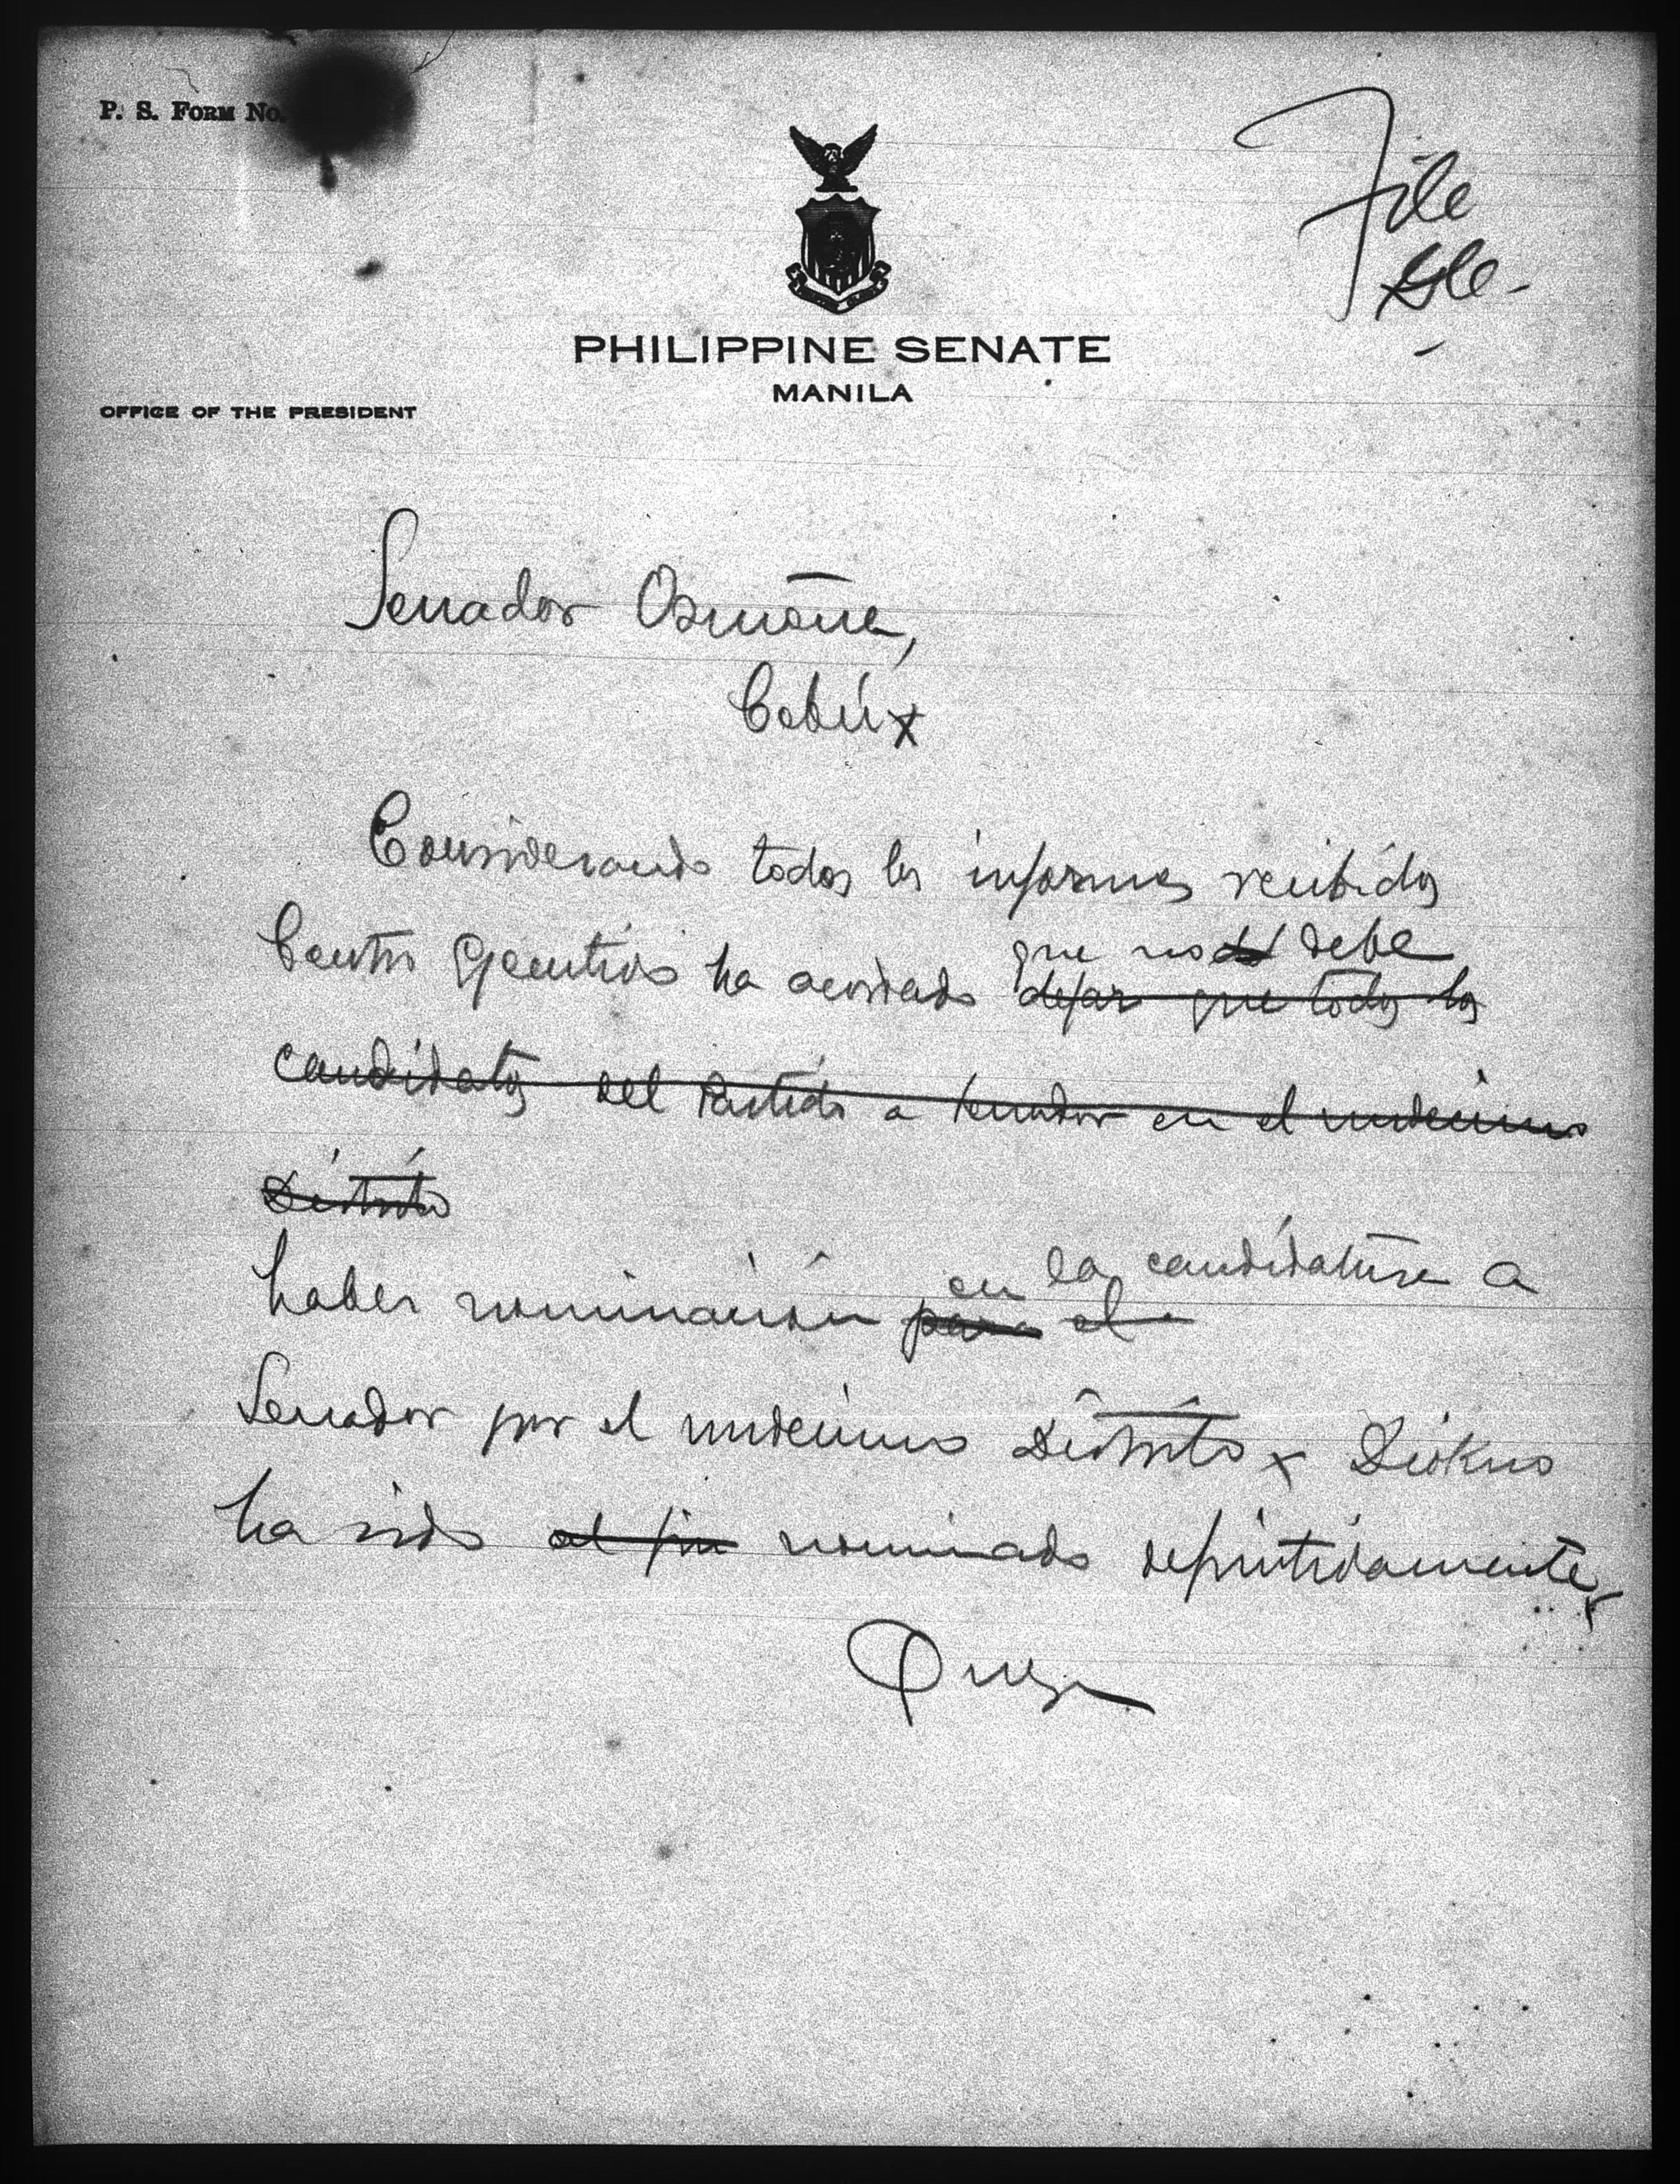 P. S. FORM No.
File
PHILIPPINE SENATE
MANILA
OFFICE OF THE PRESIDENT
Senador Osmeña,
Cebú x
Considerando todos los informes recibidos
que no debe
Centro Ejecutivo ha acordado dejar que todos los
candidatos del Partido a Senador en el undecimo
Distrito
en la candidatura a
haber nominación para el
Senador por el undecimo Distrito x Diokno
ha sido al fin nominado definitivamente x
Quezon